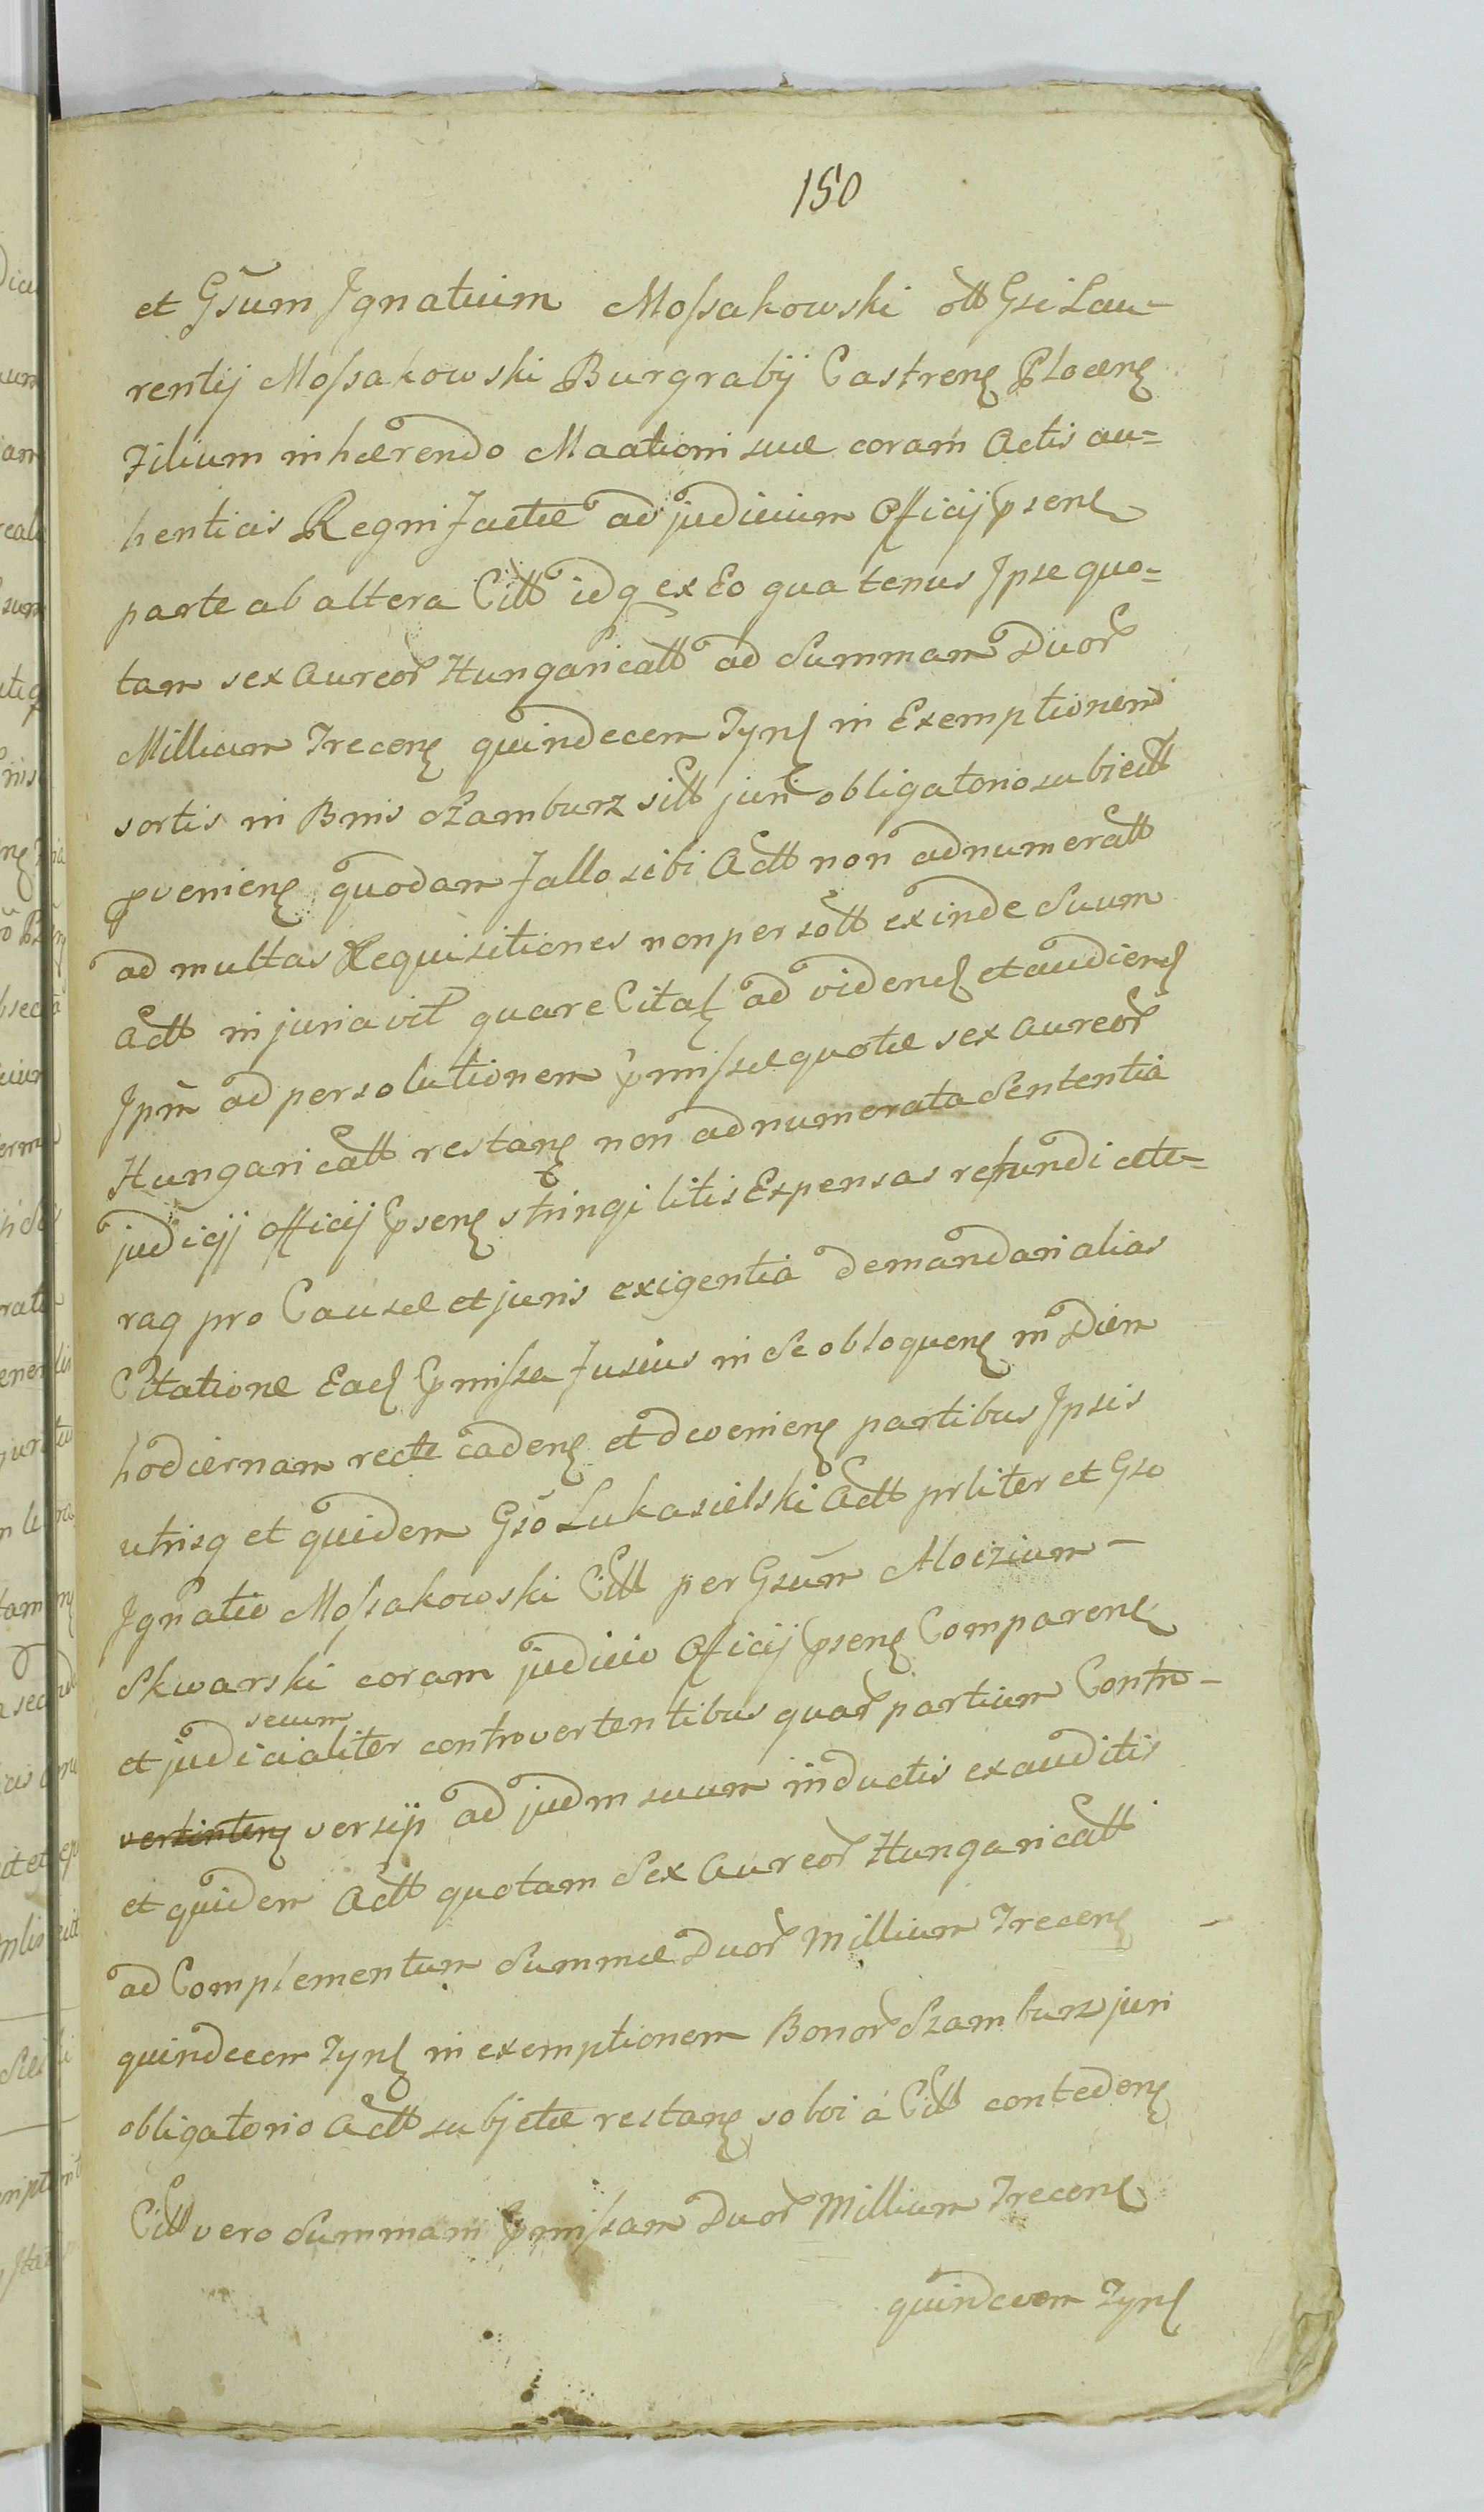 150
et Gsum Ignatium Mossakowski olt Gsi Lau-
rentij Mossakowski Burgrabij Castren Plocen
Filium inhærendo Maationi suæ coram Actis au=
henticis Regni factæ ad judicium Officij psens
parte ab altera Citt idq ex Eo quatenus Ipse quo=
tam sex Aureor Hungaricall ad Summam Duor
Millium Trecen quindecem Fyns in Exemptionem
sortis in Bnis Szamburz sitt juri obligatorio subiectt
pvenien quodam fallo sibi Actt non adnumeratt
ad multas Requisitiones non persolt exinde Suum
Actt injuriavit quare Citat ad vidend et audiend
Ipm ad persolutionem pmissæ quotæ sex aureor
Hungaricall restan non adnumerata Sententia
judicij officij psens stringi litis Expensas refundi cæte-
raq pro Causæ et juris exigentia demandari alias
Citatione Ead pmissa fusius in se obloquen in Diem
hodiernam recte caden et devenien partibus Ipsis
utrisq et quidem Gso Lukasielski Actt prliter et Gso
Ignatio Mossakowski Citt per Gsum Aloizium-
Skwarski coram judicio Officij psens Comparen
secum
et judicialiter controvertentibus quar partium Contro-
versijs ad judm suum inductis exauditis
et quidem Actt quotam Sex Aureor Hungaricall
ad Complementum Summæ Duor Millium Trecen -
quindecem Fyns in exemptionem Bonor Szamburz juri
obligatorio Actt subjectæ restan solvi à Citt conteden
Citt vero Summam pmissam Duor Millium Trecen
quindecem Fyns